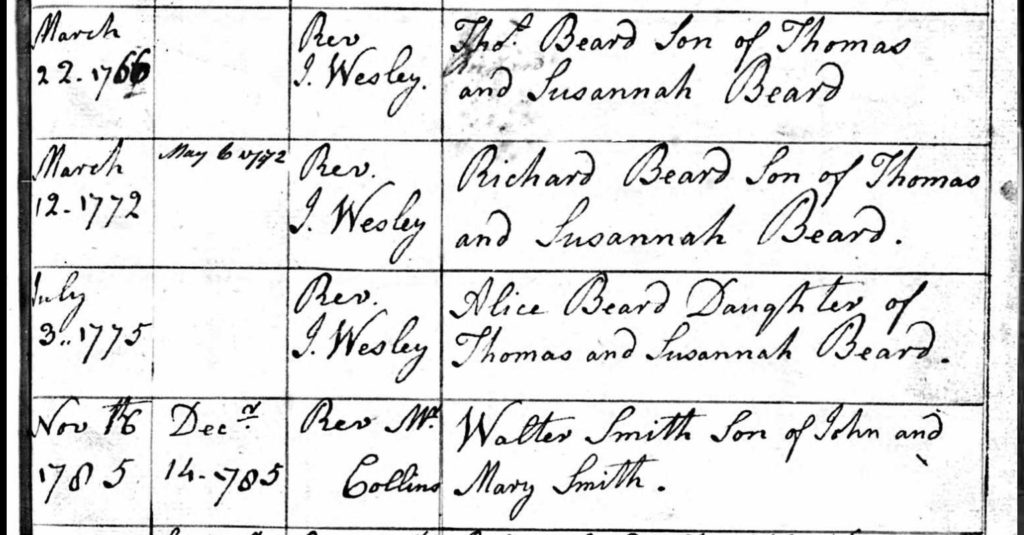 March
22. 1766
Rev
J. Wesley.
Thos. Beard Son of Thomas
and Susannah Beard
March
12. 1772
May 6 1772
Rev.
J. Wesley
Richard Beard Son of Thomas
and Susannah Beard.
July
3.. 1775
Rev.
J. Wesley
Alice Beard Daughter of
Thomas and Susannah Beard.
Nov 16
1785
Decr.
14. 1785
Rev Mr.
Collins
Walter Smith Son of John and
Mary Smith.